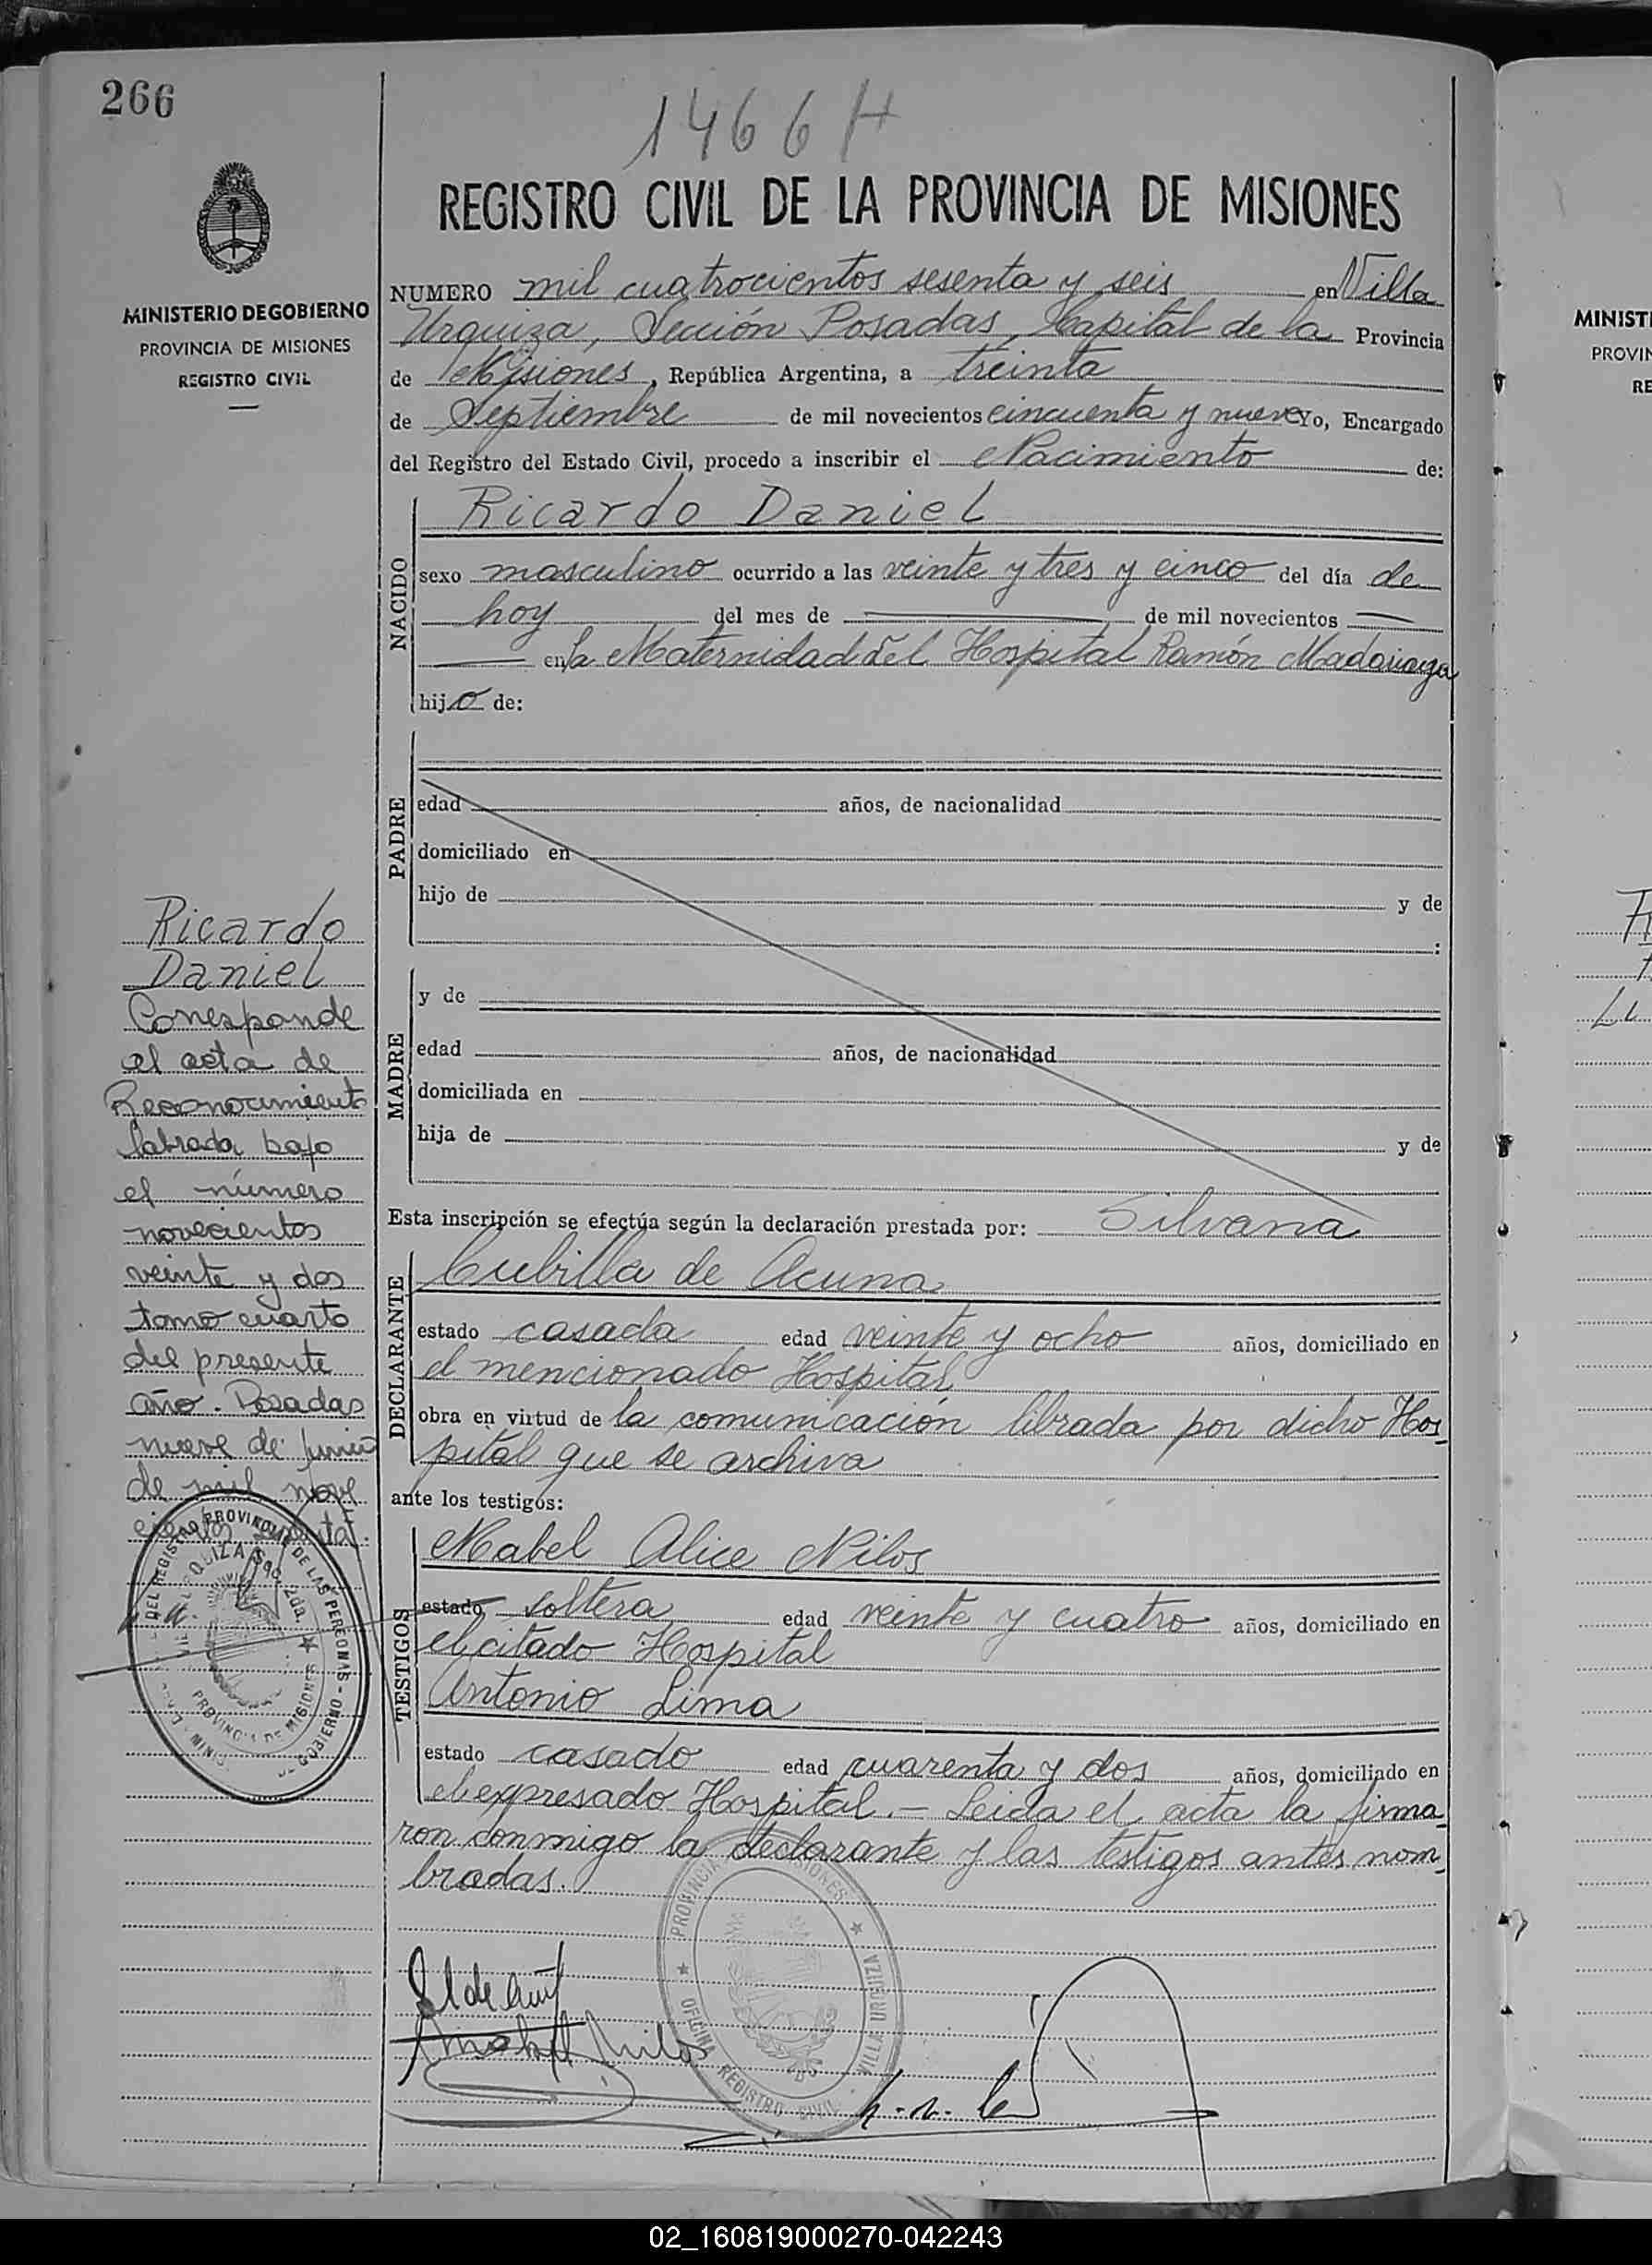 266
1466 H
REGISTRO CIVIL DE LA PROVINCIA DE MISIONES
MINISTERIO DE GOBIERNO
PROVINCIA DE MISIONES
REGISTRO CIVIL
NUMERO mil cuatrocientos sesenta y seis en Villa
Urquiza, Sección Posadas, Capital de la Provincia
de Misiones, República Argentina, a treinta
de Septiembre de mil novecientos cincuenta y nueve Yo, Encargado
del Registro del Estado Civil, procedo a inscribir el Nacimiento de:
NACIDO
Ricardo Daniel
sexo masculino ocurrido a las veinte y tres y cinco del día de
hoy del mes de de mil novecientos
en la Maternidad del Hospital Ramón Madariaga
hijo de:
PADRE
edad años, de nacionalidad
domiciliado en
hijo de y de
:
MADRE
y de
edad años, de nacionalidad
domiciliada en
hija de y de
Esta inscripción se efectúa según la declaración prestada por: Silvana
DECLARANTE
Cubilla de Acuna
estado casada edad veinte y ocho años, domiciliado en
el mencionado Hospital
obra en virtud de la comunicación librada por dicho Hos-
pital que se archiva
ante los testigos:
TESTIGOS
Mabel Alice Nilos
estado soltera edad veinte y cuatro años, domiciliado en
el citado Hospital
Antonio Lima
estado casado edad cuarenta y dos años, domiciliado en
el expresado Hospital.— Leida el acta la firma-
ron conmigo la declarante y las testigos antes nom-
bradas.
Ricardo
Daniel
Corresponde
al acta de
Reconocimiento
labrada bajo
el número
novecientos
veinte y dos
tomo cuarto
del presente
año. Posadas
nueve de junio
de mil nove
cientos
DEL REGISTRO PROVINCIAL DE LAS PERSONAS
PROVINCIA DE MISIONES
PROVINCIA MISIONES
OFICINA REGISTRO CIVIL VILLA URQUIZA
MINIST
PROVIN
RE
02_160819000270-042243